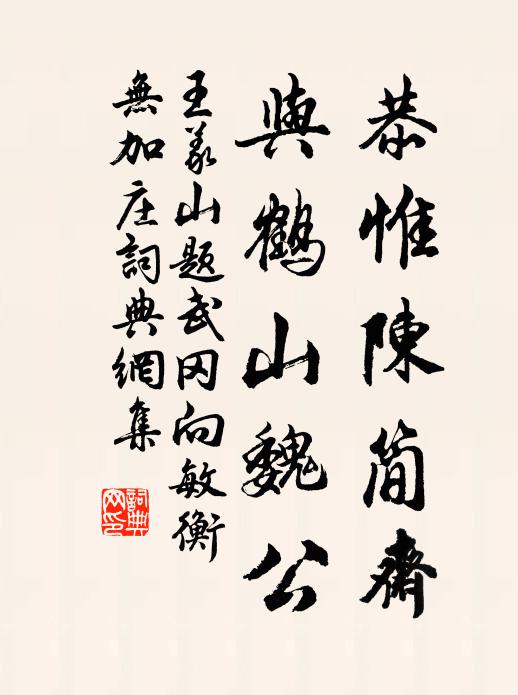 恭惟陳简齋
與鶴山魏公
王義山題武冈向敏衡
無加庄詞典網集
詞典网印